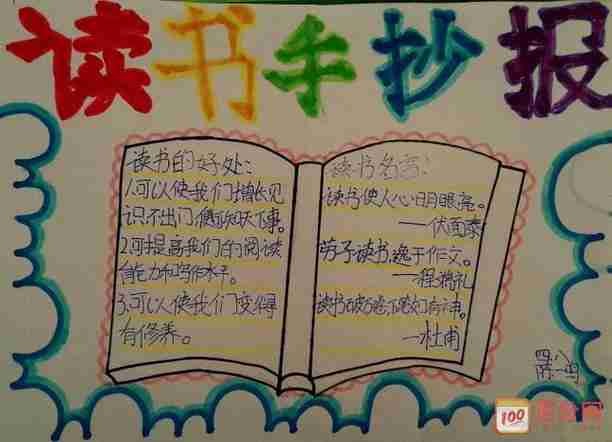 读书手抄报
读书的好处:
1.可以使我们增长见
识不出门,便知天下事。
2.可提高我们的阅读
能力和写作水平。
3.可以使我们变得
有修养。
读书名言:
读书使人心明眼亮。
——伏尔泰
劳于读书,逸于作文。
——程端礼
读书破万卷,下笔如有神。
—杜甫
四、八
100